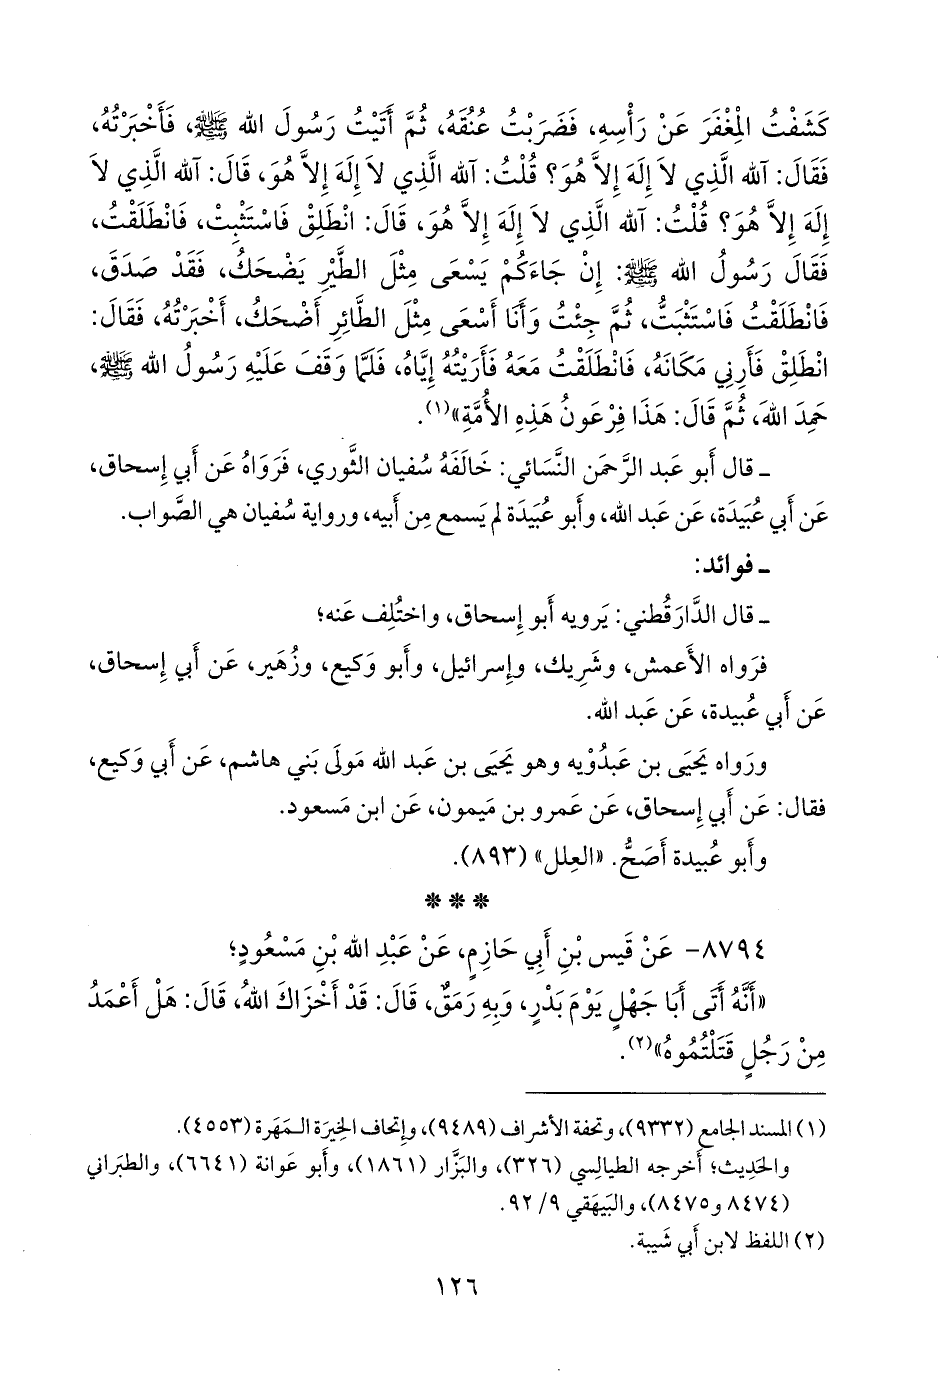 كَشَفْتُ المِغْفَرَ عَنْ رَأْسِهِ، فَضَرَبْتُ عُنُقَهُ، ثُمَّ أَتَيْتُ رَسُولَ الله ﷺ، فَأَخْبَرْتُهُ،
فَقَالَ: آلله الَّذِي لاَ إِلَهَ إِلاَّ هُوَ؟ قُلْتُ: آلله الَّذِي لاَ إِلَهَ إِلاَّ هُوَ، قَالَ: آلله الَّذِي لاَ
إِلَهَ إِلاَّ هُوَ؟ قُلْتُ: آلله الَّذِي لاَ إِلَهَ إِلاَّ هُوَ، قَالَ: انْطَلِقْ فَاسْتَثْبِتْ، فَانْطَلَقْتُ،
فَقَالَ رَسُولُ الله ﷺ: إِنْ جَاءَكُمْ يَسْعَى مِثْلَ الطَّيْرِ يَضْحَكُ، فَقَدْ صَدَقَ،
فَانْطَلَقْتُ فَاسْتَثْبَتُّ، ثُمَّ جِئْتُ وَأَنَا أَسْعَى مِثْلَ الطَّائِرِ أَضْحَكُ، أَخْبَرْتُهُ، فَقَالَ:
انْطَلِقْ فَأَرِنِي مَكَانَهُ، فَانْطَلَقْتُ مَعَهُ فَأَرَيْتُهُ إِيَّاهُ، فَلَمَّا وَقَفَ عَلَيْهِ رَسُولُ الله ﷺ،
حَمِدَ اللهَ، ثُمَّ قَالَ: هَذَا فِرْعَوْنُ هَذِهِ الأُمَّةِ»(١).
ـ قال أَبو عَبد الرَّحمَن النَّسَائي: خَالَفَهُ سُفيان الثَّوري، فَرَوَاهُ عَن أَبي إِسحاق،
عَن أَبي عُبَيدَة، عَن عَبد الله، وأَبو عُبَيدَة لم يَسمع مِن أَبيه، ورواية سُفيان هي الصَّواب.
ـ فوائد:
ـ قال الدَّارَقُطني: يَرويه أَبو إِسحاق، واختُلِف عَنه؛
فرَواه الأَعمش، وشَرِيك، وإِسرائيل، وأَبو وَكيع، وزُهَير، عَن أَبي إِسحاق،
عَن أَبي عُبيدة، عَن عَبد الله.
ورَواه يَحيَى بن عَبدُوْيه وهو يَحيَى بن عَبد الله مَولَى بَني هاشم، عَن أَبي وَكيع،
فقال: عَن أَبي إِسحاق، عَن عَمرو بن مَيمون، عَن ابن مَسعود.
وأَبو عُبيدة أَصَحُّ. «العِلل» (٨٩٣).
* * *
٨٧٩٤- عَنْ قَيسِ بْنِ أَبِي حَازِمٍ، عَنْ عَبْدِ الله بْنِ مَسْعُودٍ؛
«أَنَّهُ أَتَى أَبَا جَهْلٍ يَوْمَ بَدْرٍ، وَبِهِ رَمَقٌ، قَالَ: قَدْ أَخْزَاكَ اللهُ، قَالَ: هَلْ أَعْمَدُ
مِنْ رَجُلٍ قَتَلْتُمُوهُ»(٢).
(١) المسند الجامع (٩٣٣٢)، وتحفة الأشراف (٩٤٨٩)، وإتحاف الخِيرَة الـمَهَرة (٤٥٥٣).
والحَدِيث؛ أَخرجه الطيالِسي (٣٢٦)، والبَزَّار (١٨٦١)، وأَبو عَوانة (٦٦٤١)، والطبَراني
(٨٤٧٤ و٨٤٧٥)، والبَيهَقي ٩/ ٩٢.
(٢) اللفظ لابن أَبي شَيبة.
١٢٦